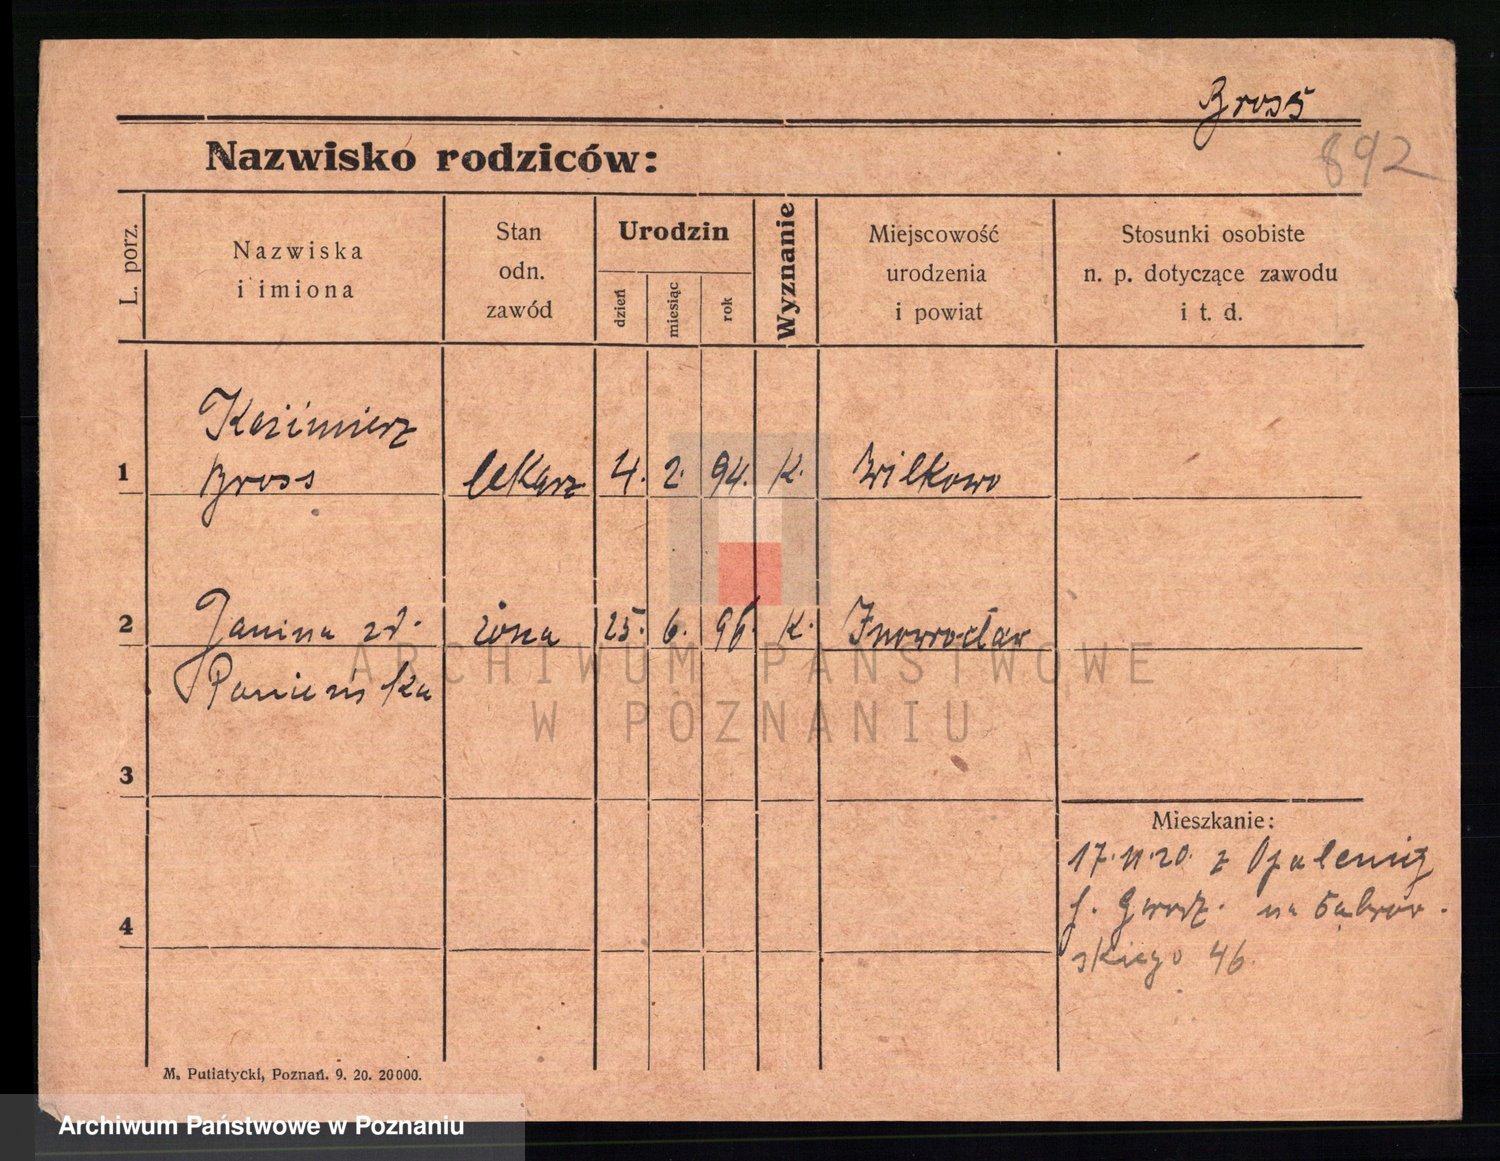 Bross
892
Nazwisko rodziców:
L. porz.
Nazwiska
i imiona
Stan
odn.
zawód
Urodzin
dzień
miesiąc
rok
Wyznanie
Miejscowość
urodzenia
i powiat
Stosunki osobiste
n. p. dotyczące zawodu
i t. d.
Kazimierz
1 Bross lekarz 4. 2. 94. K. Wilkowo
2 Janina zd. żona 25. 6. 96. K. Inowrocław
Panieńska
ARCHIWUM PAŃSTWOWE
W POZNANIU
3
Mieszkanie:
17.11.20. z Opalenicy
4
na Dąbrow-
skiego 46.
M. Putiatycki, Poznań. 9. 20. 20000.
Archiwum Państwowe w Poznaniu